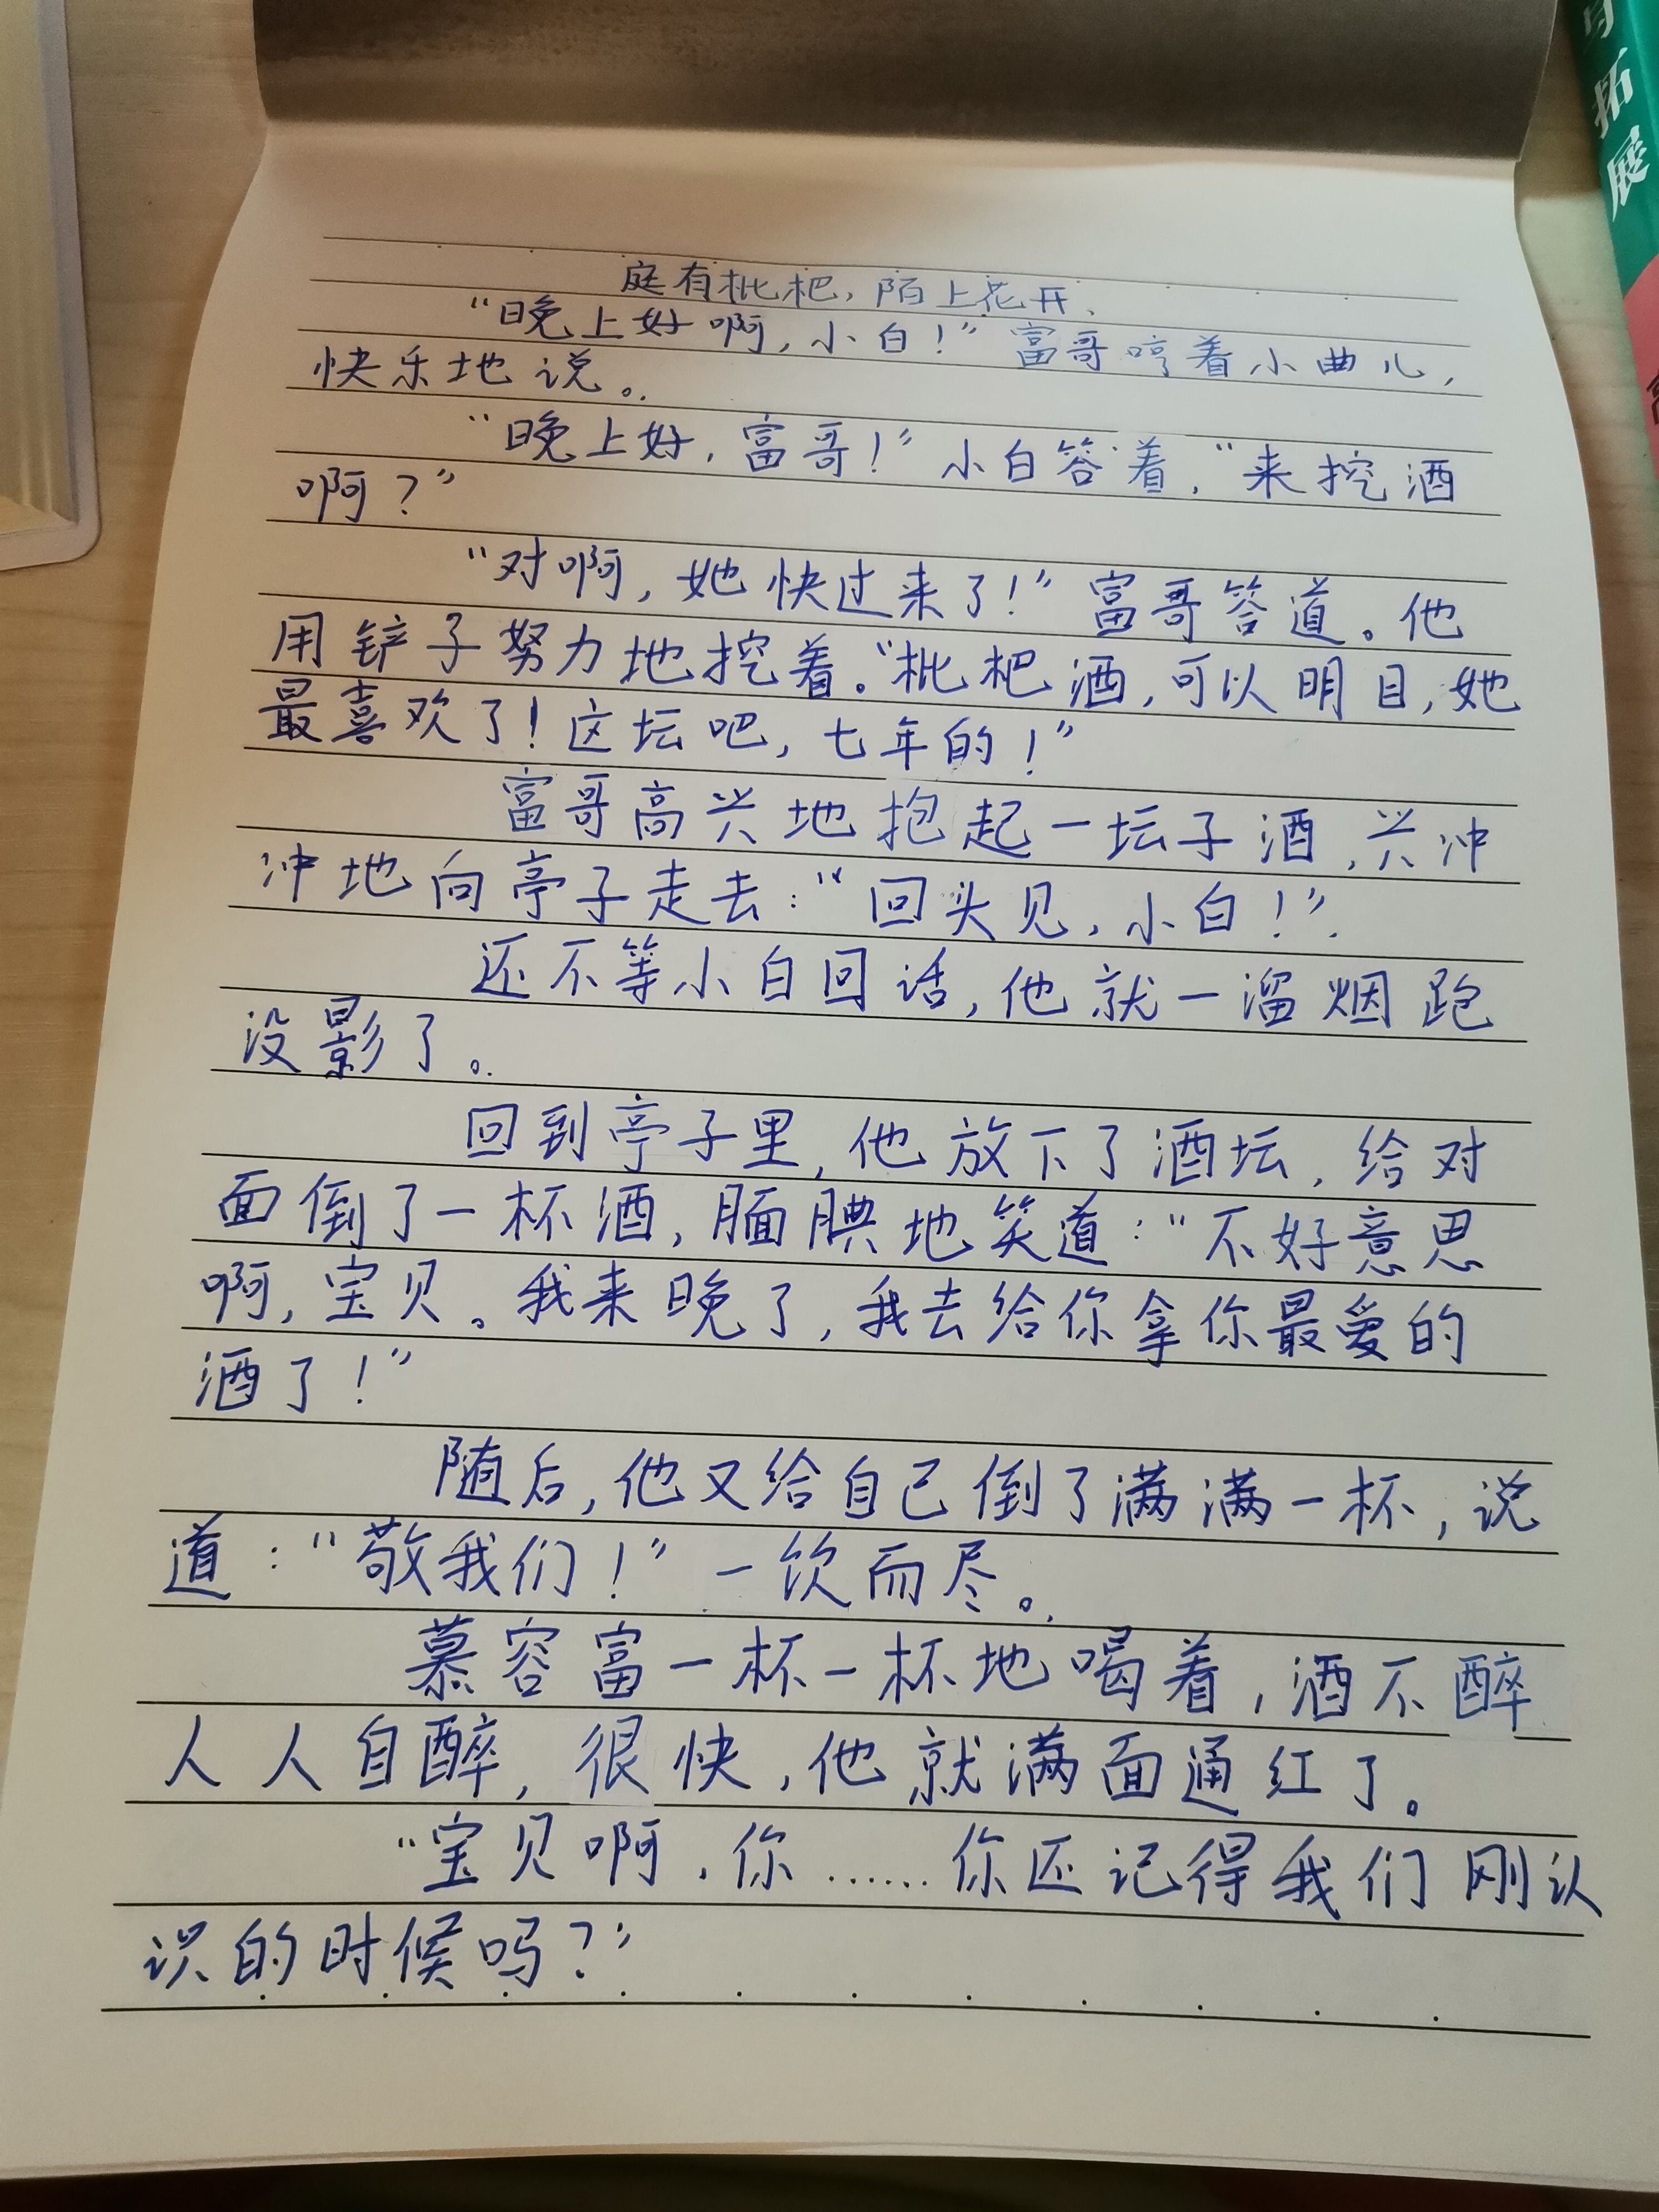 庭有枇杷，陌上花开、
“晚上好啊，小白！”富哥哼着小曲儿，
快乐地说。
“晚上好，富哥！”小白答着，“来挖酒
啊？”
“对啊，她快过来了！”富哥答道。他
用铲子努力地挖着。“枇杷酒，可以明目，她
最喜欢了！这坛吧，七年的！”
富哥高兴地抱起一坛子酒，兴冲
冲地向亭子走去：“回头见，小白！”
还不等小白回话，他就一溜烟跑
没影了。
回到亭子里，他放下了酒坛，给对
面倒了一杯酒，腼腆地笑道：“不好意思
啊，宝贝。我来晚了，我去给你拿你最爱的
酒了！”
随后，他又给自己倒了满满一杯，说
道：“敬我们！”一饮而尽。
慕容富一杯一杯地喝着，酒不醉
人人自醉，很快，他就满面通红了。
“宝贝啊，你……你还记得我们刚认
识的时候吗？”
与拓展